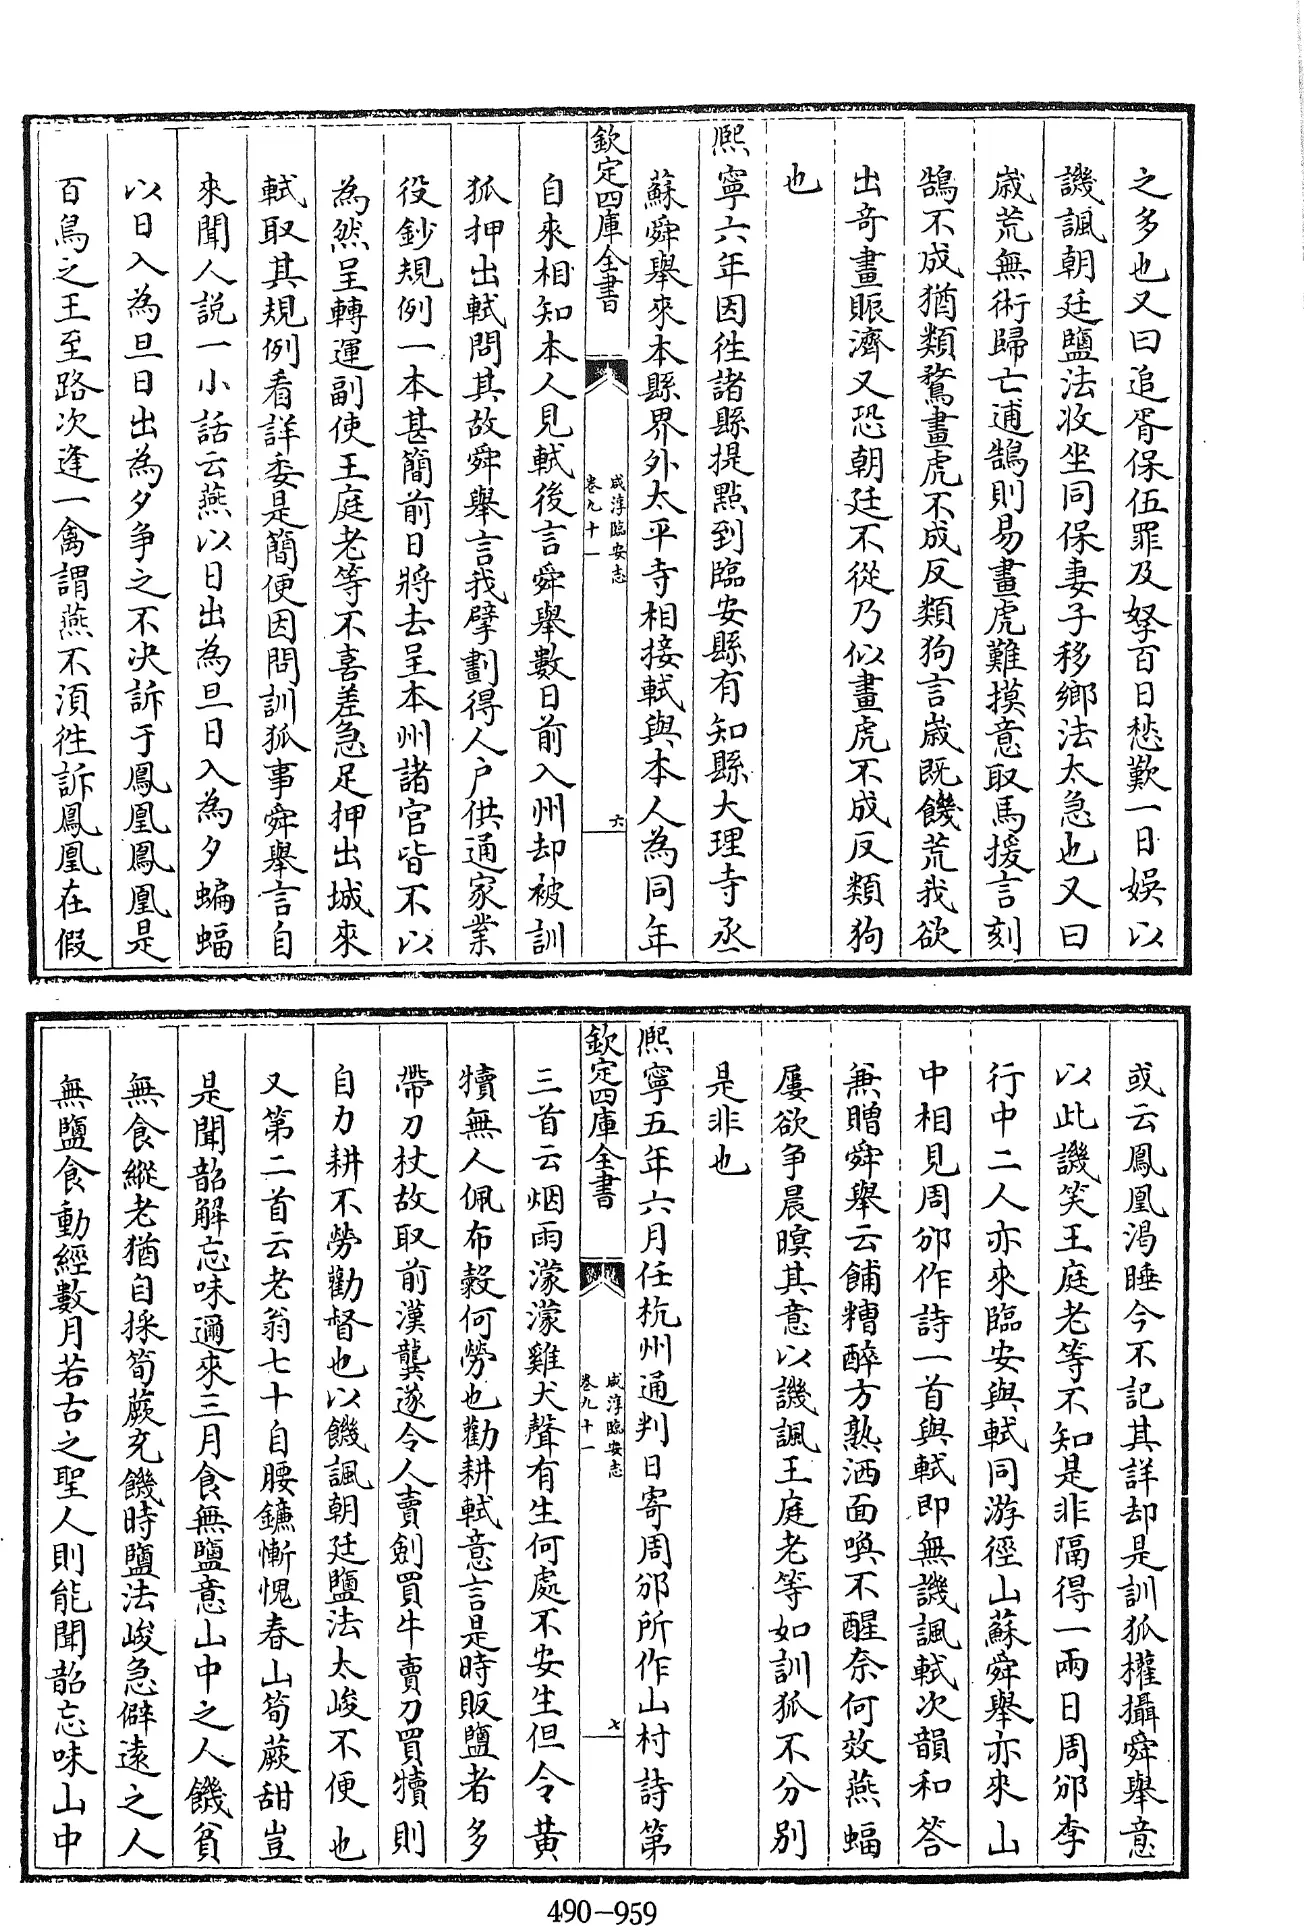 之多也又曰追胥保伍罪及孥百日愁歎一日娛以
譏諷朝廷鹽法收坐同保妻子移鄉法太急也又曰
歲荒無術歸亡逋鵠則易畫虎難摸意取馬援言刻
鵠不成猶類鶩畫虎不成反類狗言歲既饑荒我欲
出奇畫賑濟又恐朝廷不從乃似畫虎不成反類狗
也
熙寧六年因徃諸縣提點到臨安縣有知縣大理寺丞
蘇舜舉來本縣界外太平寺相接軾與本人為同年
欽定四庫全書
咸淳臨安志
卷九十一
六
自來相知本人見軾後言舜舉數日前入州却被訓
狐押出軾問其故舜舉言我擘劃得人户供通家業
役鈔規例一本甚簡前日將去呈本州諸官皆不以
為然呈轉運副使王庭老等不喜差急足押出城來
軾取其規例看詳委是簡便因問訓狐事舜舉言自
來聞人說一小話云燕以日出為旦日入為夕蝙蝠
以日入為旦日出為夕争之不決訴于鳳凰鳳凰是
百鳥之王至路次逢一禽謂燕不湏徃訴鳳凰在假
或云鳳凰渴睡今不記其詳却是訓狐權攝舜舉意
以此譏笑王庭老等不知是非隔得一兩日周邠李
行中二人亦來臨安與軾同游徑山蘇舜舉亦來山
中相見周邠作詩一首與軾即無譏諷軾次韻和答
兼贈舜舉云餔糟醉方熟洒面喚不醒奈何效燕蝠
屢欲争晨暝其意以譏諷王庭老等如訓狐不分别
是非也
熙寧五年六月任杭州通判日寄周邠所作山村詩第
欽定四庫全書
咸淳臨安志
卷九十一
七
三首云烟雨濛濛雞犬聲有生何處不安生但令黄
犢無人佩布穀何勞也勸耕軾意言是時販鹽者多
帶刀杖故取前漢龔遂令人賣劍買牛賣刀買犢則
自力耕不勞勸督也以饑諷朝廷鹽法太峻不便也
又第二首云老翁七十自腰鐮慚愧春山筍蕨甜豈
是聞韶解忘味邇來三月食無鹽意山中之人饑貧
無食縱老猶自採筍蕨充饑時鹽法峻急僻遠之人
無鹽食動經數月若古之聖人則能聞韶忘味山中
490-959